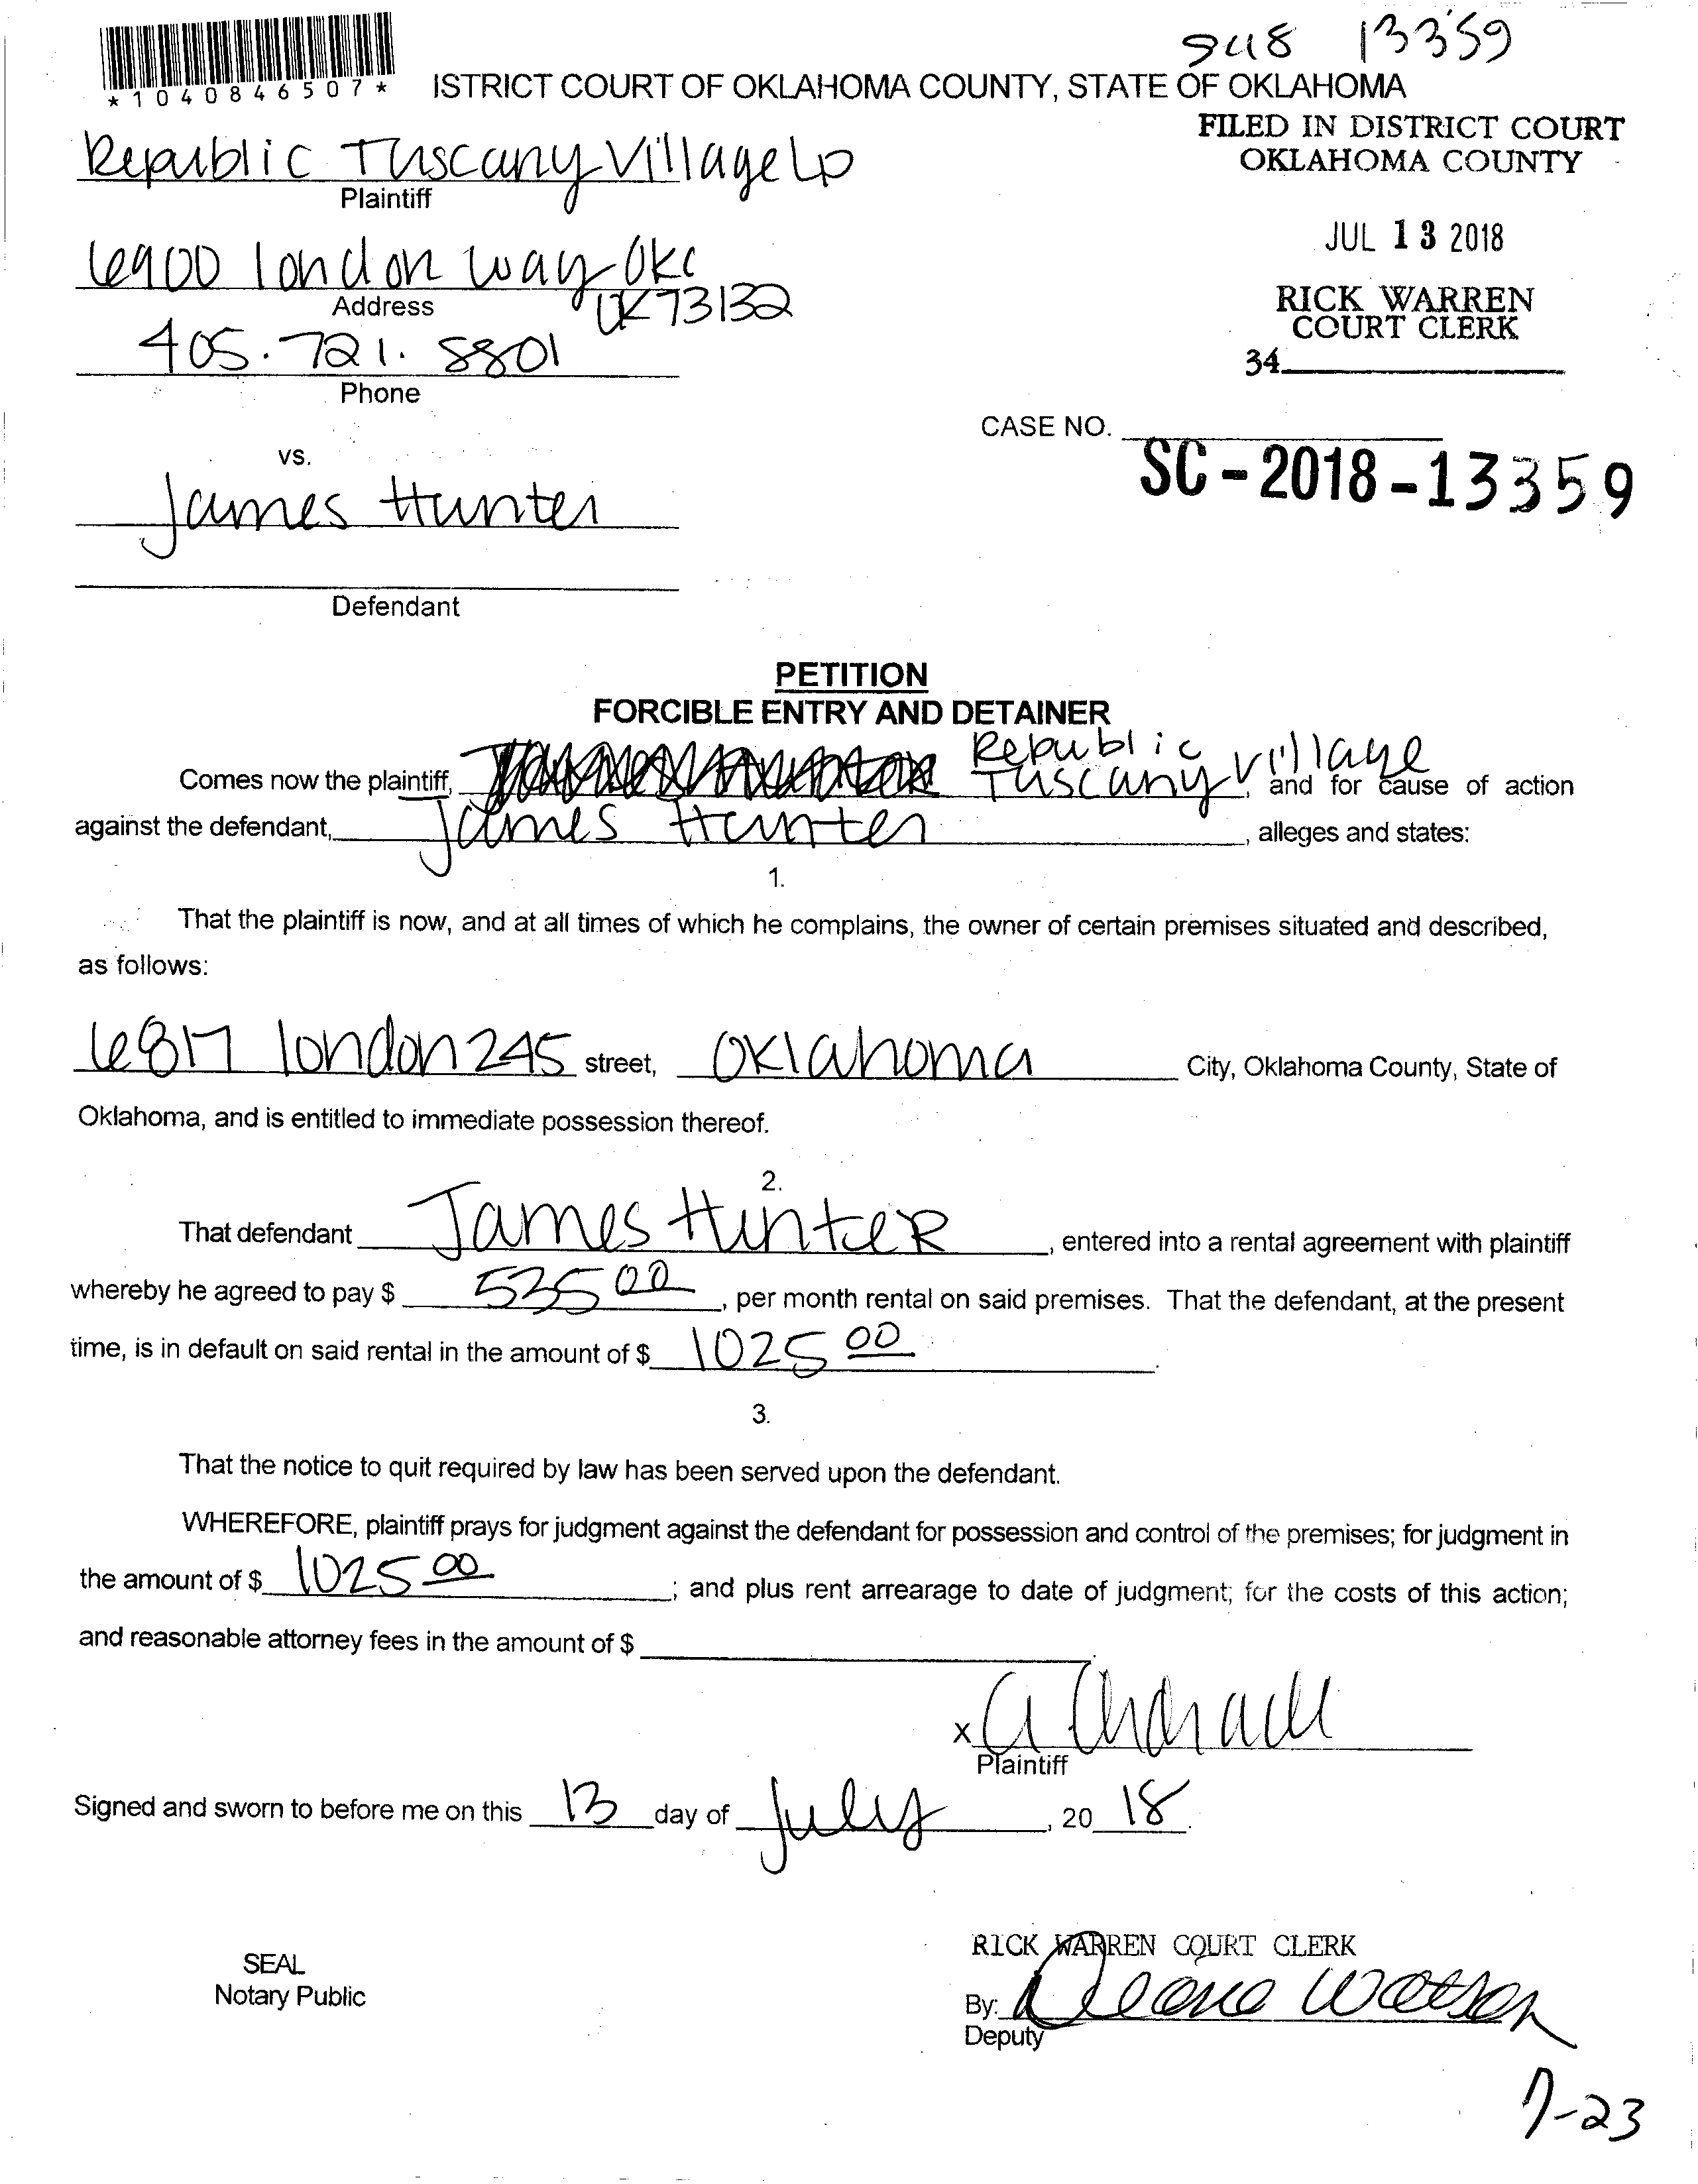 SC18 13359
*1040846507*
ISTRICT COURT OF OKLAHOMA COUNTY, STATE OF OKLAHOMA
FILED IN DISTRICT COURT
OKLAHOMA COUNTY
Republic Tuscany Village Lp
Plaintiff
JUL 13 2018
6900 london way OKC
Address
OK 73132
RICK WARREN
COURT CLERK
405.721.8801
34
Phone
CASE NO.
SC-2018-13359
vs.
James Hunter
Defendant
PETITION
FORCIBLE ENTRY AND DETAINER
Comes now the plaintiff, Republic Tuscany Village, and for cause of action
against the defendant, James Hunter, alleges and states:
1.
That the plaintiff is now, and at all times of which he complains, the owner of certain premises situated and described,
as follows:
6817 london 245 street, Oklahoma City, Oklahoma County, State of
Oklahoma, and is entitled to immediate possession thereof.
2.
That defendant James Hunter, entered into a rental agreement with plaintiff
whereby he agreed to pay $ 535 00, per month rental on said premises. That the defendant, at the present
time, is in default on said rental in the amount of $ 1025 00.
3.
That the notice to quit required by law has been served upon the defendant.
WHEREFORE, plaintiff prays for judgment against the defendant for possession and control of the premises; for judgment in
the amount of $ 1025 00; and plus rent arrearage to date of judgment; for the costs of this action;
and reasonable attorney fees in the amount of $
x
Plaintiff
Signed and sworn to before me on this 13 day of July, 20 18.
SEAL
Notary Public
RICK WARREN COURT CLERK
By: Watson
Deputy
7-23